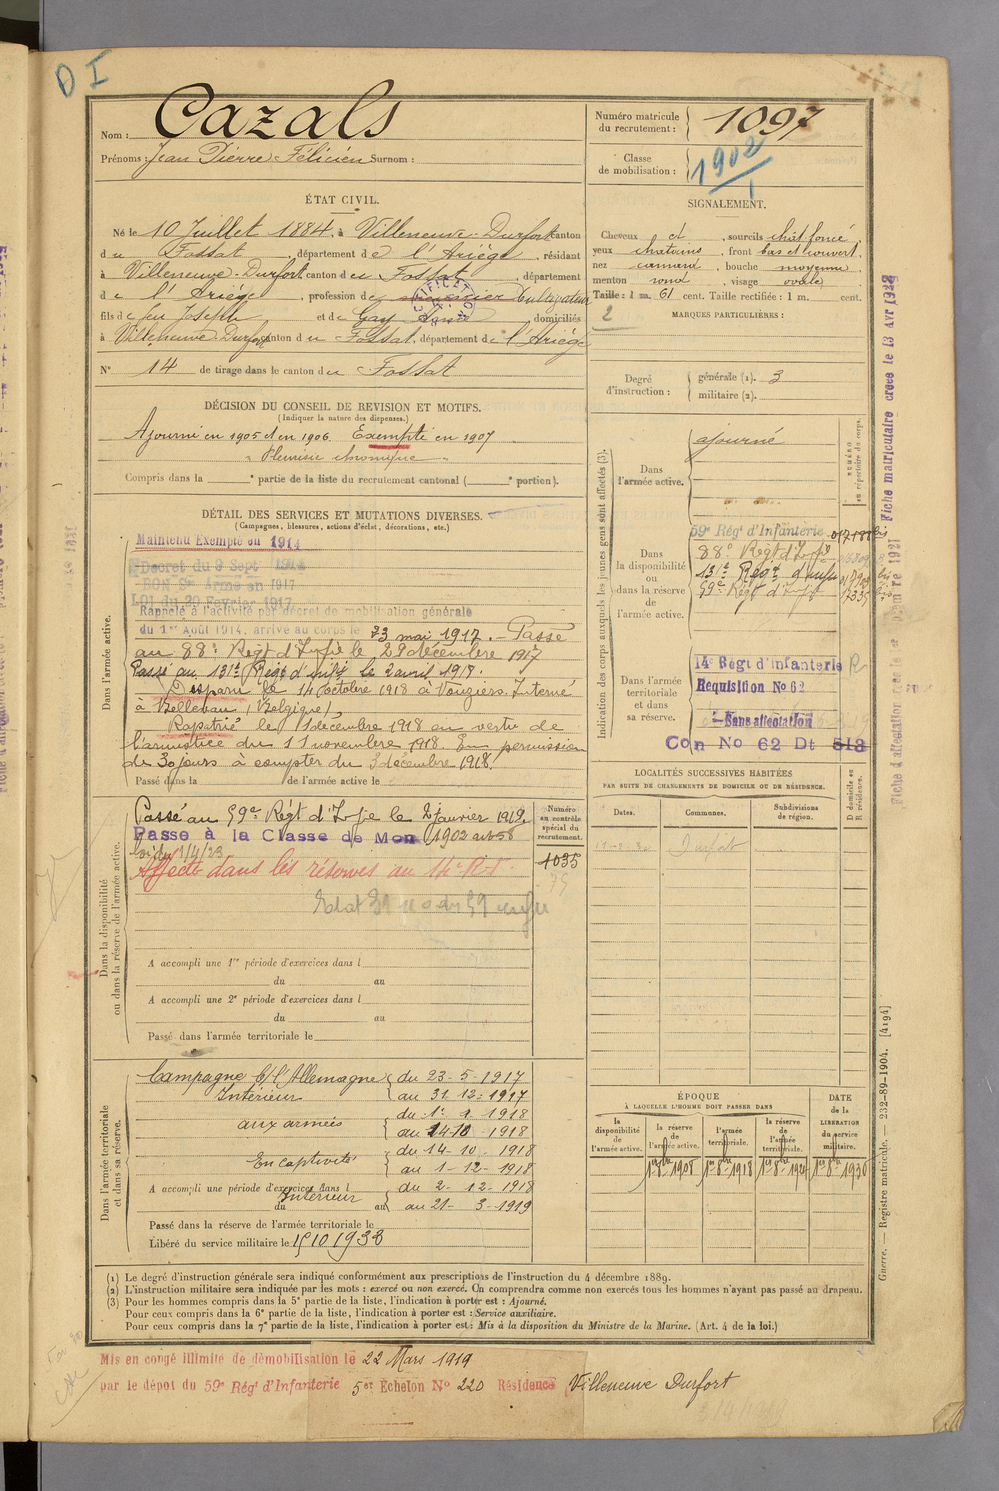 D I
Nom : Cazals
Prénoms : Jean Pierre Félicien Surnom :
Numéro matricule
du recrutement : 1097
Classe
de mobilisation : 1902
ÉTAT CIVIL.
Né le 10 Juillet 1884, à Villeneuve-Durfort canton
du Fossat, département de l'Ariège, résidant
à Villeneuve-Durfort canton du Fossat, département
de l'Ariège, profession de Cultivateur
fils de feu Joseph et de Gay domiciliés
à Villeneuve-Durfort canton du Fossat, département de l'Ariège
N° 14 de tirage dans le canton du Fossat
SIGNALEMENT.
Cheveux et, sourcils chât foncé
yeux chatains, front bas et couvert,
nez, bouche moyenne
menton rond, visage ovale
Taille : 1 m. 61 cent. Taille rectifiée : 1 m. cent.
2 MARQUES PARTICULIÈRES :
Degré
d'instruction :
générale (1). 3
militaire (2).
DÉCISION DU CONSEIL DE REVISION ET MOTIFS.
(Indiquer la nature des dispenses.)
Ajourné en 1905 et en 1906. Exempté en 1907
" Pleurésie chronique "
Compris dans la e partie de la liste du recrutement cantonal ( e portion).
DÉTAIL DES SERVICES ET MUTATIONS DIVERSES.
(Campagnes, blessures, actions d'éclat, décorations, etc.)
Dans l'armée active.
Maintenu Exempté en 1914
Décret du 9 Sept 1914
BON Sce Armé en 1917
LOI du 20 Février 1917
Rappelé à l'activité par décret de mobilisation générale
du 1er Août 1914, arrivé au corps le 23 mai 1917. - Passé
au 88e Régt d'Infie le 29 décembre 1917
Passé au 131e Régt d'infie le 2 avril 1918.
Disparu le 14 octobre 1918 à Vouziers. Interné
à (Belgique)
Rapatrié le 1 décembre 1918 en vertu de
l'armistice du 11 novembre 1918. En permission
de 30 jours à compter du 3 décembre 1918.
Passé dans la de l'armée active le
Dans la disponibilité
ou dans la réserve de l'armée active.
Passé au 59e Régt d'Infie le 2 janvier 1919.
Passé à la Classe de Mon 1902
loi du 1/4/23
Affecté dans les réserves au 14e R.I.
A accompli une 1re période d'exercices dans l
du au
A accompli une 2e période d'exercices dans l
du au
Passé dans l'armée territoriale le
Numéro
au contrôle
spécial du
recrutement.
1035
Dans l'armée territoriale
et dans sa réserve.
Campagne c/ l'Allemagne du 23-5-1917
Intérieur au 31-12-1917
du 1-1-1918
aux armées au 14-10-1918
du 14-10-1918
En captivité au 1-12-1918
A accompli une période d'exercices dans l du 2-12-1918
Intérieur
du au au 21-3-1919
Passé dans la réserve de l'armée territoriale le
Libéré du service militaire le 15 10 1933
Indication des corps auxquels les jeunes gens sont affectés (3).
NUMÉRO
au répertoire du corps.
Dans
l'armée active.
ajourné
Dans
la disponibilité
ou
dans la réserve
de
l'armée active.
59e Régt d'Infanterie
88e Régt d'Infie
131e Régt d'infie
59e Régt d'Infie
Dans l'armée
territoriale
et dans
sa réserve.
14e Régt d'infanterie
Requisition No 62
Sans affectation
Con No 62 Dt 513
LOCALITÉS SUCCESSIVES HABITÉES
PAR SUITE DE CHANGEMENTS DE DOMICILE OU DE RÉSIDENCE.
Dates.
Communes.
Subdivisions
de région.
D domicile ou
R résidence.
Durfort
ÉPOQUE
À LAQUELLE L'HOMME DOIT PASSER DANS
DATE
de la
LIBÉRATION
du service
militaire.
la
disponibilité
de
l'armée active.
la réserve
de
l'armée active.
l'armée
territoriale.
la réserve
de
l'armée
territoriale.
1er 8bre 1908
1er 8bre 1918
1er 8bre 1924
1er 8bre 1930
Fiche matriculaire créée le 13 Avr 1923
Guerre. — Registre matricule. — 232-89-1904. [4194]
(1) Le degré d'instruction générale sera indiqué conformément aux prescriptions de l'instruction du 4 décembre 1889.
(2) L'instruction militaire sera indiquée par les mots : exercé ou non exercé. On comprendra comme non exercés tous les hommes n'ayant pas passé au drapeau.
(3) Pour les hommes compris dans la 5e partie de la liste, l'indication à porter est : Ajourné.
Pour ceux compris dans la 6e partie de la liste, l'indication à porter est : Service auxiliaire.
Pour ceux compris dans la 7e partie de la liste, l'indication à porter est : Mis à la disposition du Ministre de la Marine. (Art. 4 de la loi.)
Mis en congé illimité de démobilisation le 22 Mars 1919
par le dépôt du 59e Régt d'Infanterie 5er Échelon No 220 Résidence Villeneuve Durfort